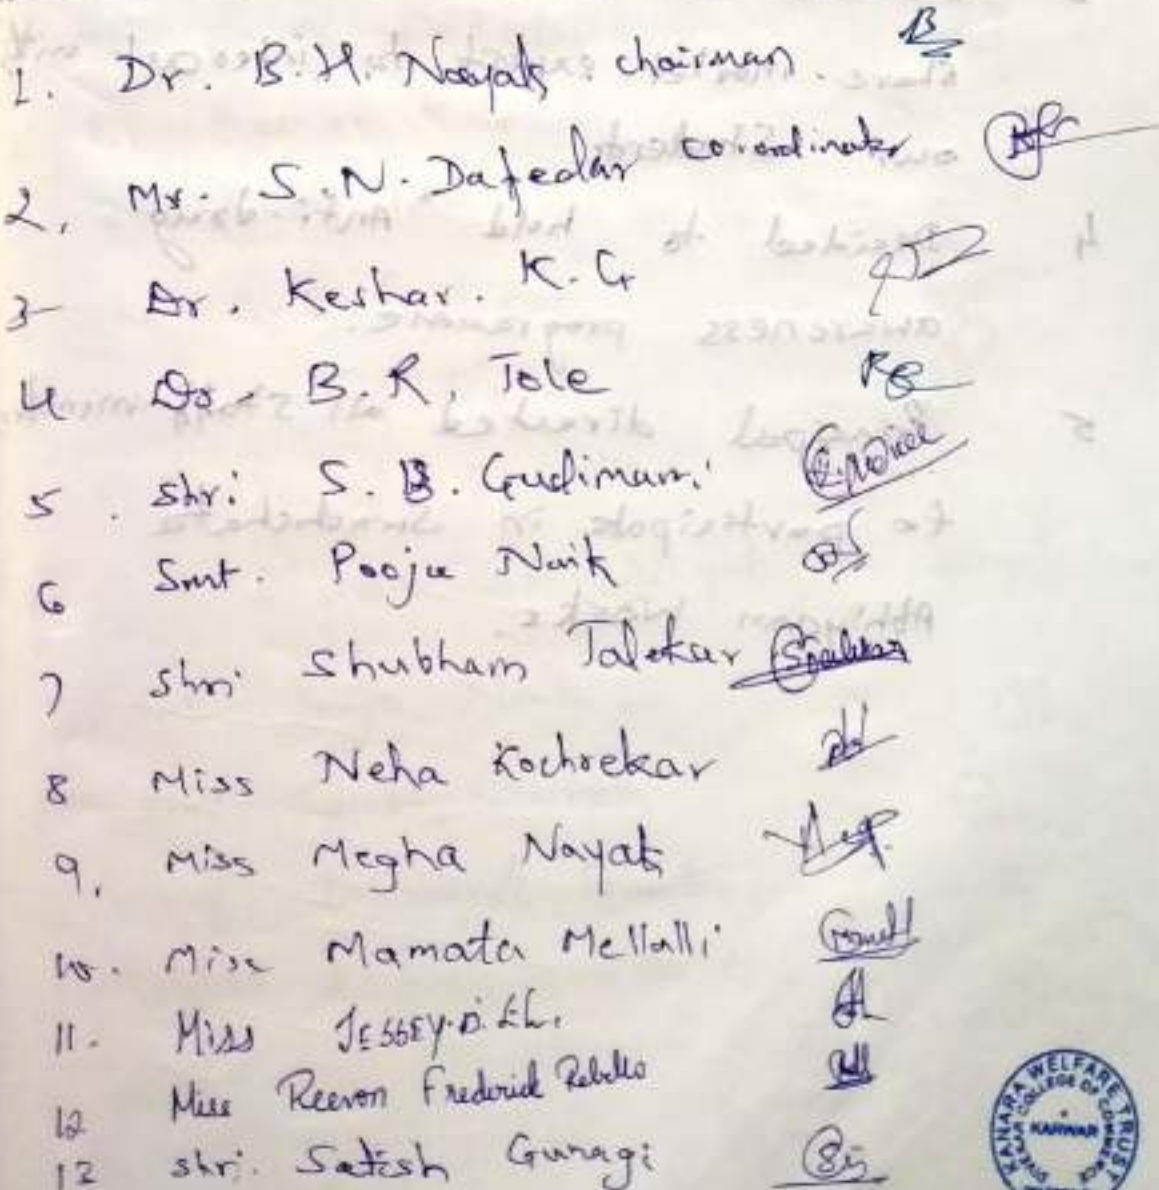 1. Dr. B.H. Nayak chairman.
2. Mr. S.N. Dafedar co-ordinator
3 Dr. Keshav. K. G
4 Dr. B.R. Tole
5. Shri S.B. Gudimani
6 Smt. Pooja Naik
7 Shri Shubham Talekar
8 Miss Neha Kochrekar
9. Miss Megha Nayak
10. Miss Mamata Mellalli
11. Miss JESSEY.D.
12 Miss Reevon Frederick Rebello
13 Shri. Satish Gunagi
KANARA WELFARE TRUST
DIVEKAR COLLEGE OF COMMERCE
KARWAR